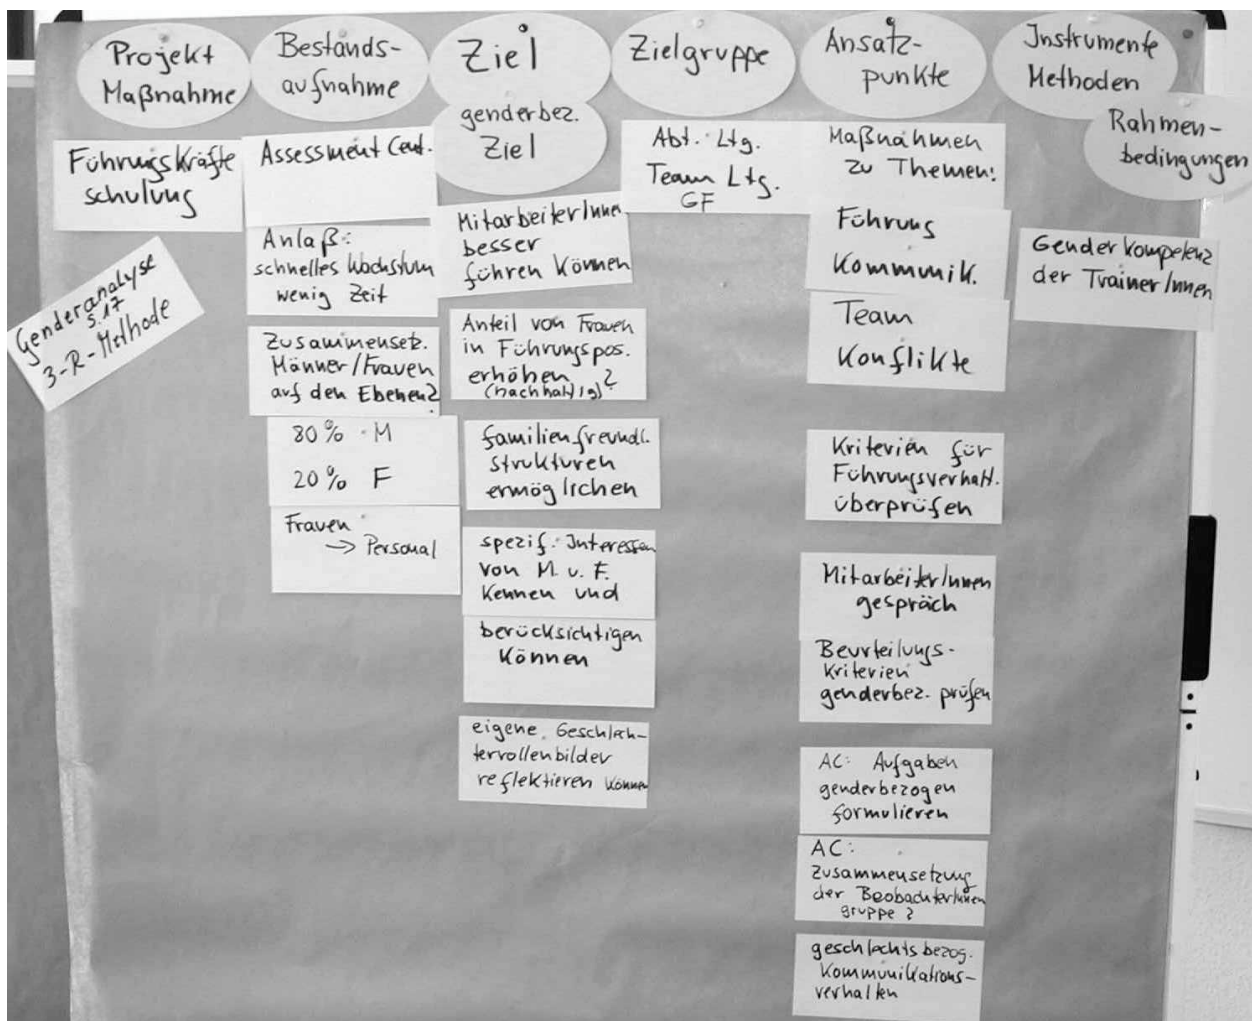 Projekt
Maßnahme
Führungskräfte
schulung
Genderanalyse
S.17
3-R-Methode
Bestands-
aufnahme
Assessment Cent.
Anlaß:
schnelles Wachstum
wenig Zeit
Zusammensetz.
Männer/Frauen
auf den Ebenen?
80% M
20% F
Frauen
→ Personal
Ziel
genderbez.
Ziel
MitarbeiterInnen
besser
führen können
Anteil von Frauen
in Führungspos.
erhöhen ?
(nachhaltig)
familienfreundl.
strukturen
ermöglichen
spezif. Interessen
von M. u. F.
kennen und
berücksichtigen
können
eigene Geschlech-
terrollenbilder
reflektieren können
Zielgruppe
Abt. Ltg.
Team Ltg.
GF
Ansatz-
punkte
Maßnahmen
zu Themen:
Führung
Kommunik.
Team
Konflikte
Kriterien für
Führungsverhalt.
überprüfen
Mitarbeiter/Innen
gespräch
Beurteilungs-
kriterien
genderbez. prüfen
AC: Aufgaben
genderbezogen
formulieren
AC:
Zusammensetzung
der Beobachter/Innen
gruppe ?
geschlechtsbezog.
Kommunikations-
verhalten
Instrumente
Methoden
Rahmen-
bedingungen
Genderkompetenz
der Trainer/Innen